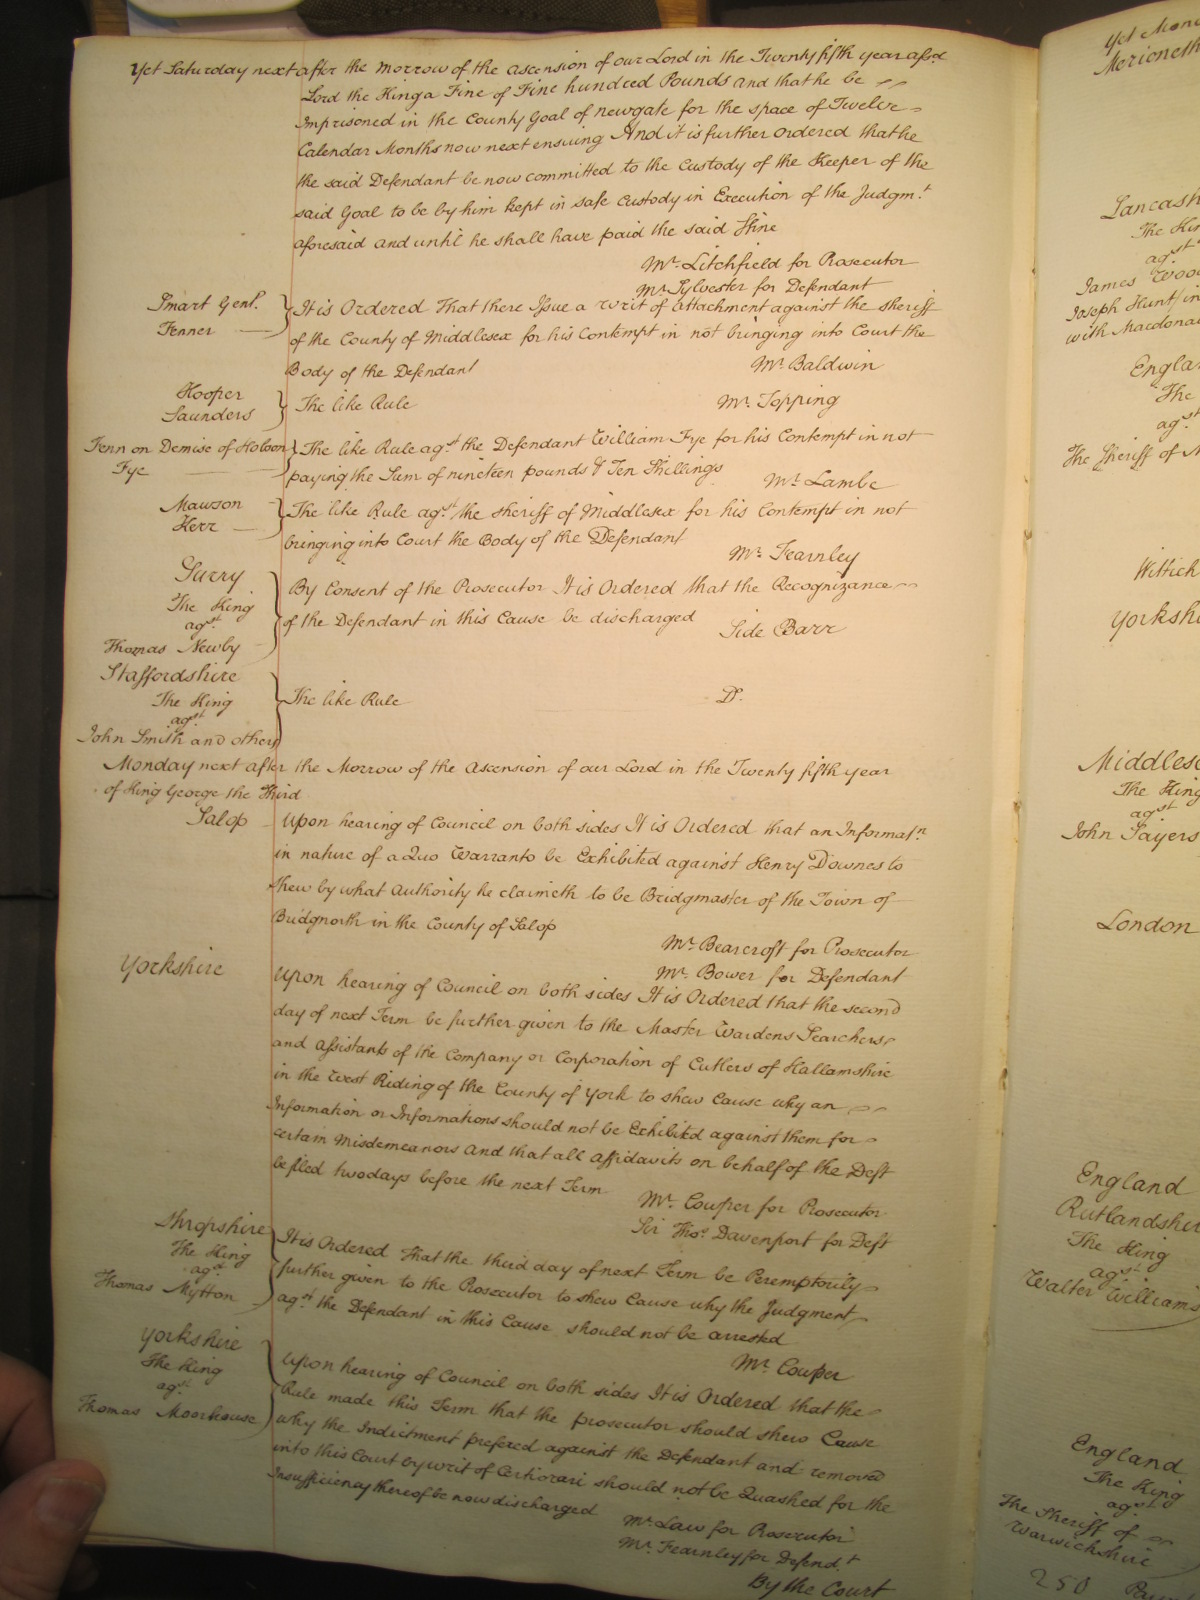 Yet Saturday next after the Morrow of the Ascension of our Lord in the Twenty fifth year afsd
Lord the King a Fine of Five hundred Pounds and that he be
Imprisoned in the County Goal of Newgate for the space of Twelve
Calendar Months now next ensuing And it is further Ordered that he
the said Defendant be now committed to the Custody of the Keeper of the
said Goal to be by him kept in safe Custody in Execution of the Judgmt
aforesaid and until he shall have paid the said Fine
Mr. Litchfield for Prosecutor
Mr. Sylvester for Defendant
Smart Gent.
Fenner
It is Ordered That there Issue a writ of attachment against the Sheriff
of the County of Middlesex for his Contempt in not bringing into Court the
Body of the Defendant
Mr. Baldwin
Hooper
Saunders
The like Rule
Mr. Topping
Fenn on Demise of
Fye
The like Rule agst the Defendant William Fye for his Contempt in not
paying the Sum of nineteen pounds & Ten Shillings
Mr. Lambe
Mawson
Kerr
The like Rule agst the Sheriff of Middlesex for his Contempt in not
bringing into Court the Body of the Defendant
Mr. Fearnley
Surry
The King
agst
Thomas Newby
By Consent of the Prosecutor It is Ordered that the Recognizance
of the Defendant in this Cause be discharged
Side Barr
Staffordshire
The King
agst
John Smith and others
The like Rule
Do.
Monday next after the Morrow of the Ascension of our Lord in the Twenty fifth year
of King George the Third
Salop
Upon hearing of Council on both sides It is Ordered that an Informatn
in nature of a Quo Warranto be Exhibited against Henry Downes to
shew by what Authority he claimeth to be Bridgmaster of the Town of
Bridgnorth in the County of Salop
Mr. Bearcroft for Prosecutor
Mr. Bower for Defendant
Yorkshire
Upon hearing of Council on both sides It is Ordered that the second
day of next Term be further given to the Master Wardens Searchers
and Assistants of the Company or Corporation of Cutlers of Hallamshire
in the West Riding of the County of York to shew Cause why an
Information or Informations should not be Exhibited against them for
certain Misdemeanors and that all Affidavits on behalf of the Deft
be filed two days before the next Term
Mr. Cowper for Prosecutor
Sir Thos. Davenport for Deft
Shropshire
The King
agst
Thomas Mytton
It is Ordered That the third day of next Term be Peremptorily
further given to the Prosecutor to shew Cause why the Judgment
agst the Defendant in this Cause should not be arrested
Mr. Cowper
Yorkshire
The King
agst
Thomas Moorhouse
Upon hearing of Council on both sides It is Ordered that the
Rule made this Term that the prosecutor should shew Cause
why the Indictment prefered against the Defendant and removed
into this Court by writ of Certiorari should not be Quashed for the
Insufficiency thereof be now discharged
Mr. Law for Prosecutor
Mr. Fearnley for Defendt
By the Court
Yet Mond
Merioneth
Lancash
The Kin
agst
James Wood
Joseph Hunt
with Macdona
Engla
The
agst
The Sheriff of M
Wittich
Yorkshi
Middlese
The King
agst
John Sayers
London
England
Rutlandshir
The King
agst
Walter Williams
England
The King
agst
The Sheriff of
Warwickshire
250